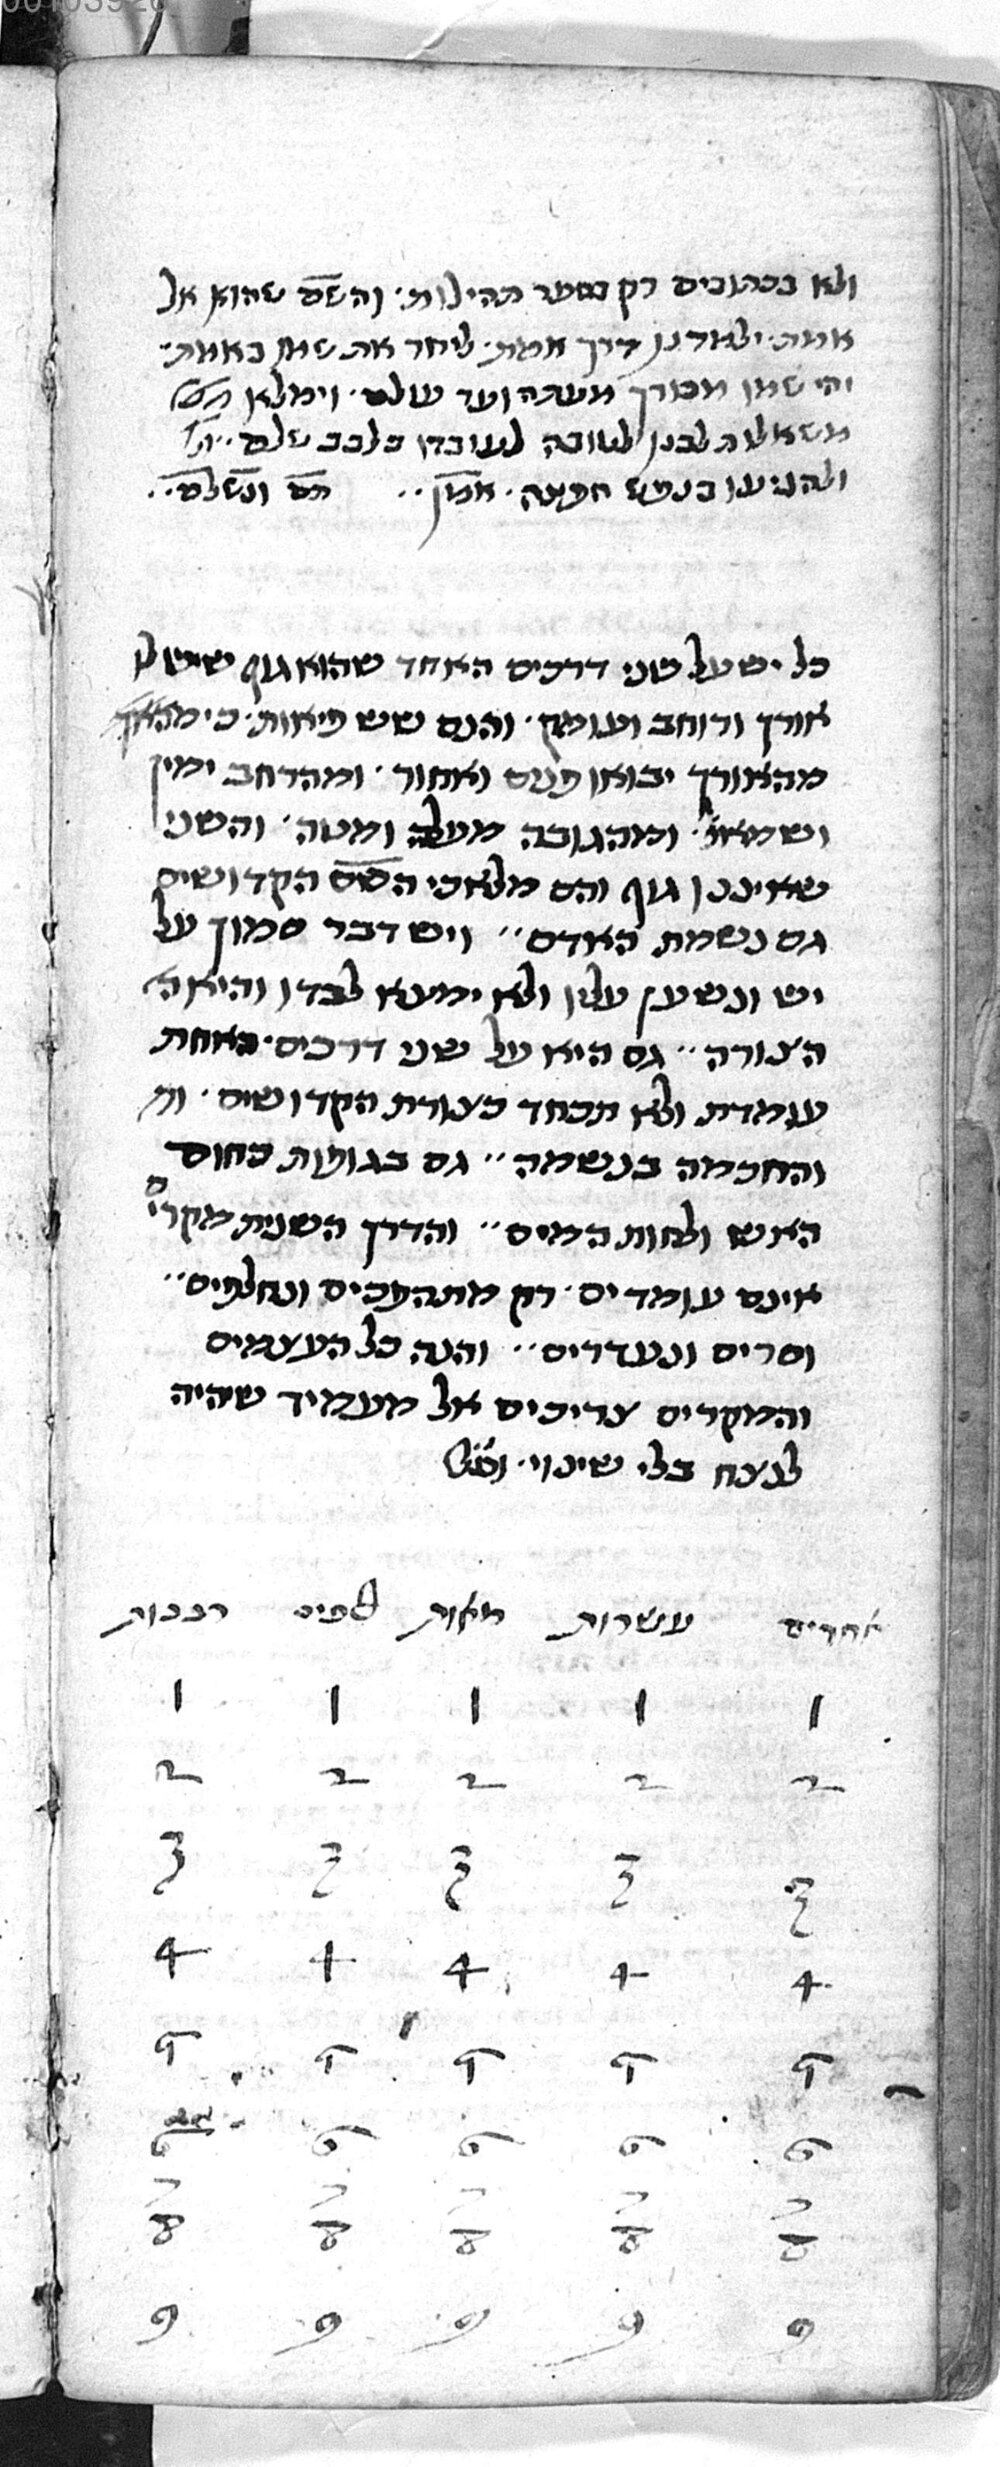 ולא בכתובים רק בספר תהילות. והשם שהוא אל
אמת. ילמדנו דרך אמת. ליחד את שמו באמת.
יהי שמו מבורך מעתה ועד עולם. וימלא
משאלות לבנו לטובה לעובדו בלבב שלם..
ולהגיענו בנפש חפצה. אמן.. תם ונשלם..
כל יש על שני דרכים האחד שהוא גוף שיש לו
אורך ורוחב ועומק. והנם שש פיאות. כי
מהאורך יבואו פנים ואחור. ומהרחב ימין
ושמאל. ומהגובה מעלה ומטה. והשני
שאיננו גוף והם מלאכי השם הקדושים
גם נשמת האדם.. ויש דבר סמוך על
יש ונשען עליו ולא ימצא לבדו והיא
הצורה.. גם היא על שני דרכים. האחת
עומדת ולא תכחד כצורת הקדושים.
והחכמה בנשמה.. גם בגופות כחום
האש ולחות המים.. והדרך השנית מקרים
אינם עומדים. רק מתהפכים ונחלפים..
וסרים ונעדרים.. והנה כל העצמים
והמקרים צריכים אל מעמיד שיהיה
לנצח בלי שינוי.
אחדים עשרות מאות אלפים רבבות
1 1 1 1 1
2 2 2 2 2
3 3 3 3 3
4 4 4 4 4
5 5 5 5 5
6 6 6 6 6
7 7 7 7 7
8 8 8 8 8
9 9 9 9 9